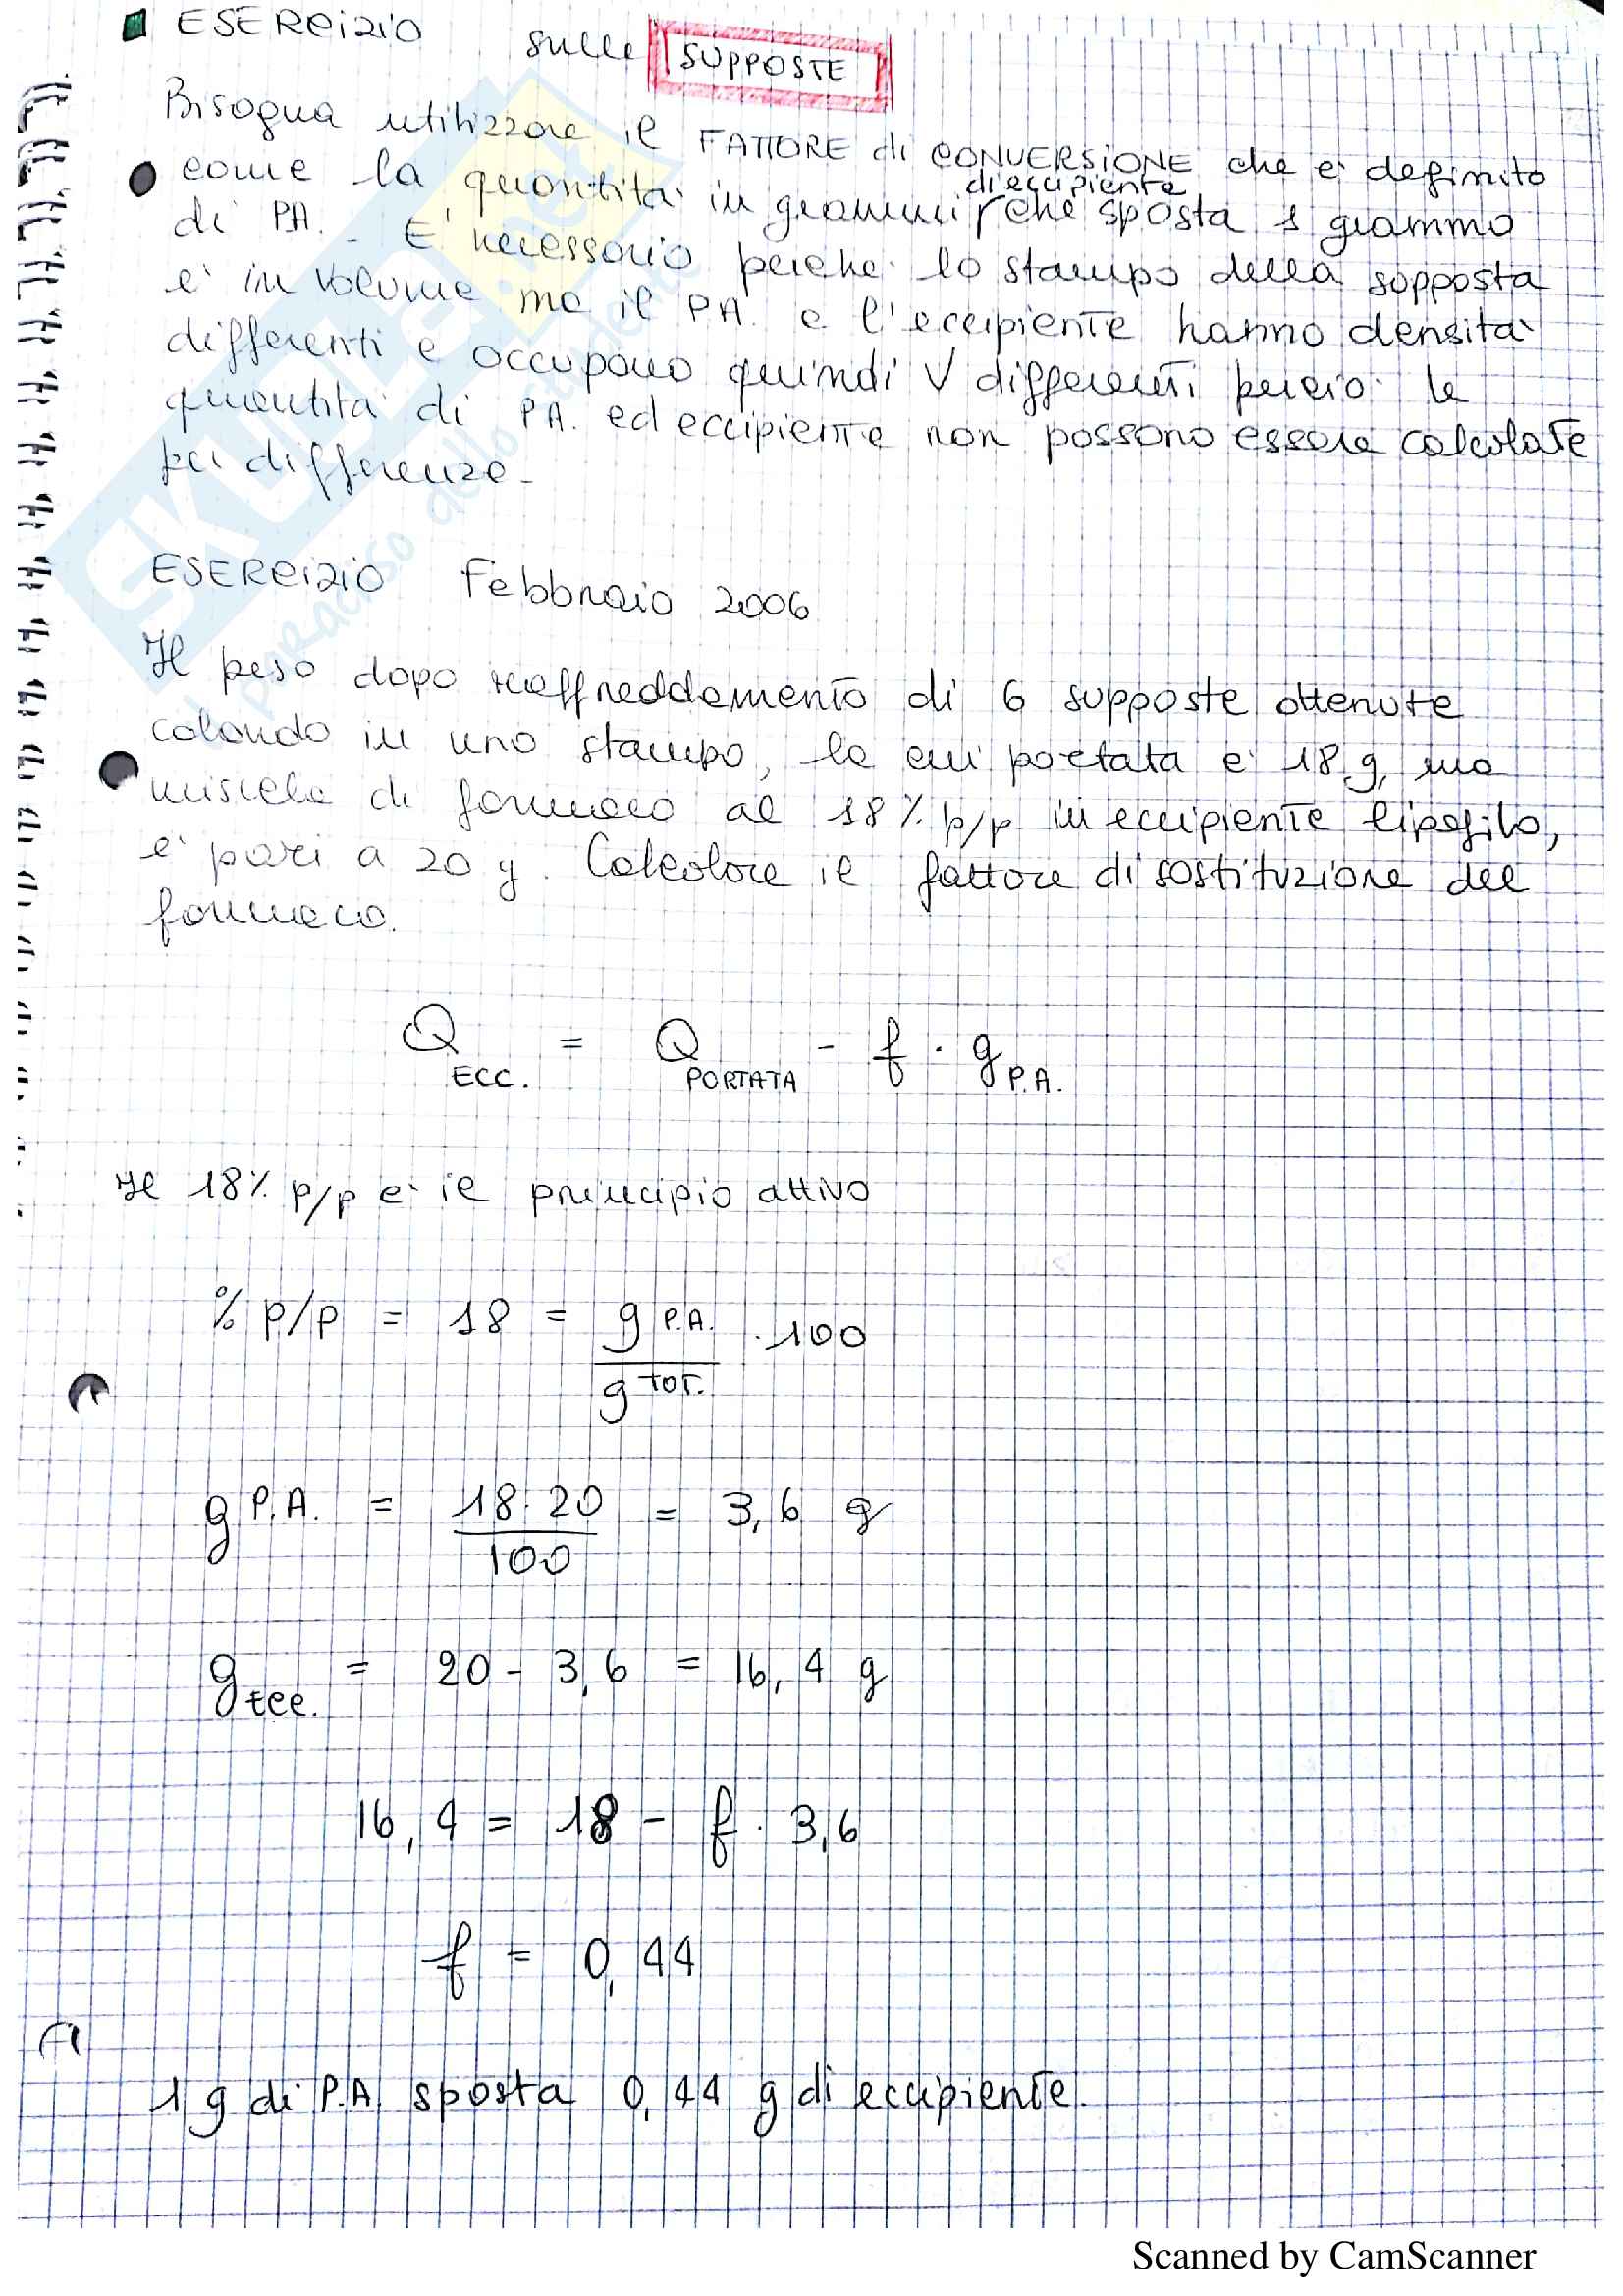 ESERCIZIO sulle SUPPOSTE
Bisogna utilizzare il FATTORE di CONVERSIONE che è definito
come la quantità in grammi di eccipiente che sposta 1 grammo
di P.A. È necessario perché lo stampo della supposta
è in volume ma il P.A. e l'eccipiente hanno densità
differenti e occupano quindi V differenti perciò le
quantità di P.A. ed eccipiente non possono essere calcolate
per differenza.
ESERCIZIO Febbraio 2006
Il peso dopo raffreddamento di 6 supposte ottenute
colando in uno stampo, la cui portata è 18 g, una
miscela di farmaco al 18% p/p in eccipiente lipofilo,
è pari a 20 g. Calcolare il fattore di sostituzione del
farmaco.
Q ECC. = Q PORTATA - f · g P.A.
Il 18% p/p è il principio attivo
% p/p = 18 = g P.A. / g TOT. · 100
g P.A. = 18·20 / 100 = 3,6 g
g ecc. = 20 - 3,6 = 16,4 g
16,4 = 18 - f · 3,6
f = 0,44
1 g di P.A. sposta 0,44 g di eccipiente.
SKUOLA.net
il paradiso dello studente
Scanned by CamScanner